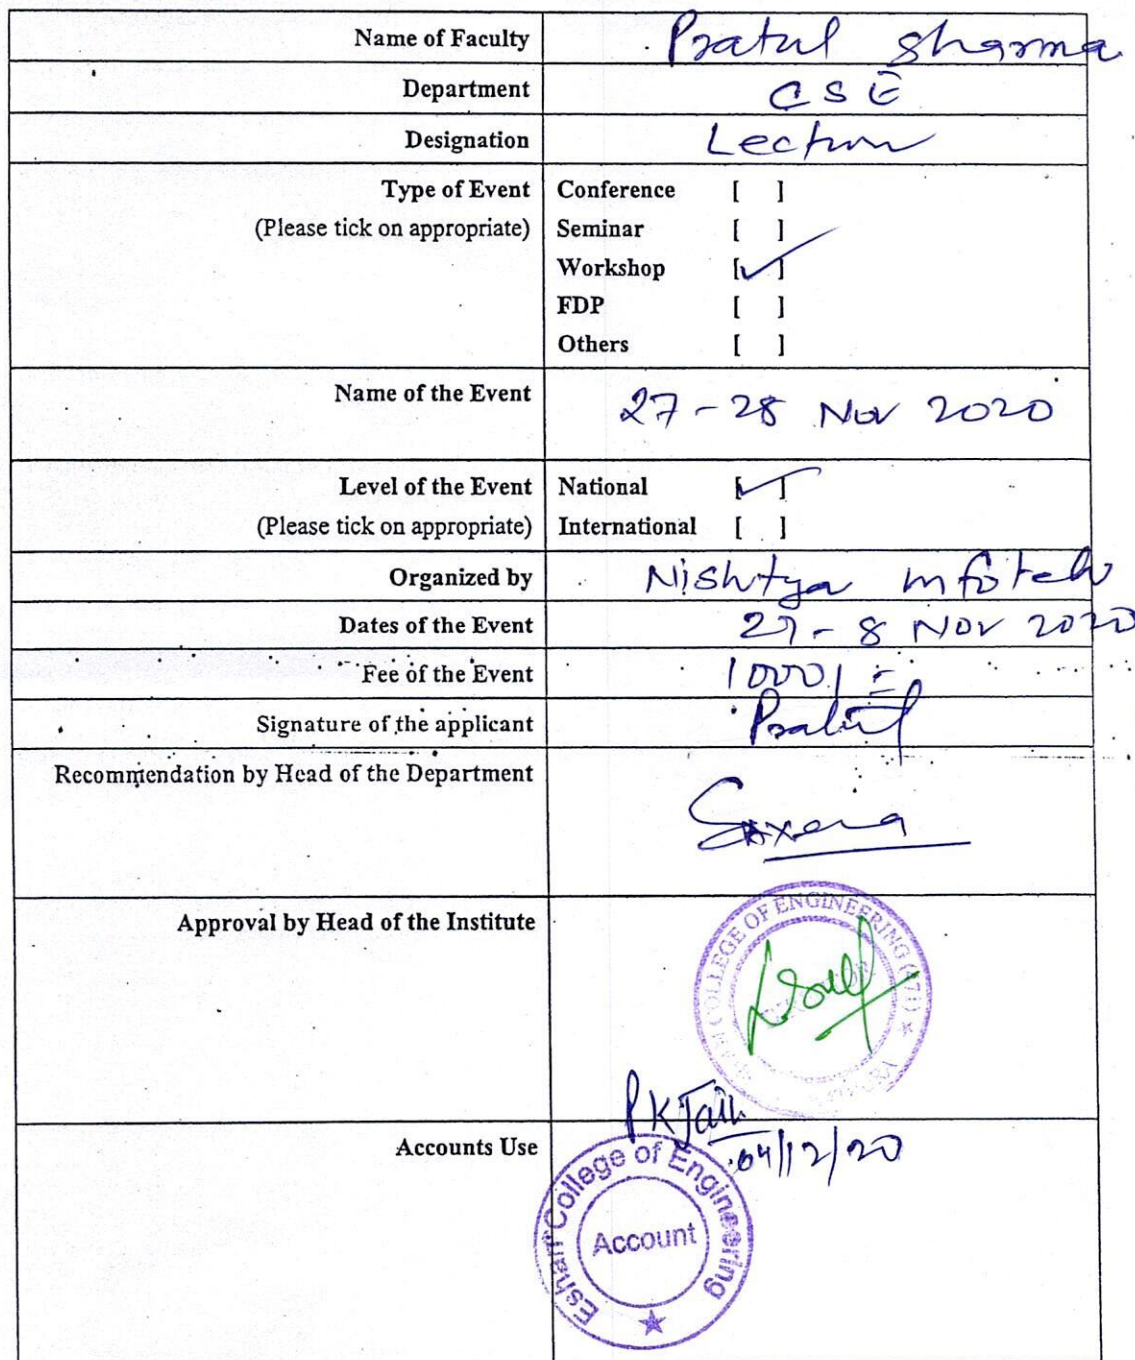 Name of Faculty Pratul Sharma
Department CSE
Designation Lectur
Type of Event Conference [ ]
(Please tick on appropriate) Seminar [ ]
Workshop [✓]
FDP [ ]
Others [ ]
Name of the Event 27-28 Nov 2020
Level of the Event National [✓]
(Please tick on appropriate) International [ ]
Organized by Nishtya infotech
Dates of the Event 27-8 Nov 2020
Fee of the Event 1000/=
Signature of the applicant Pratul
Recommendation by Head of the Department Saxena
Approval by Head of the Institute
COLLEGE OF ENGINEERING (71) ★
PK Jain
04/12/20
Accounts Use
Eshan College of Engineering
Account
★